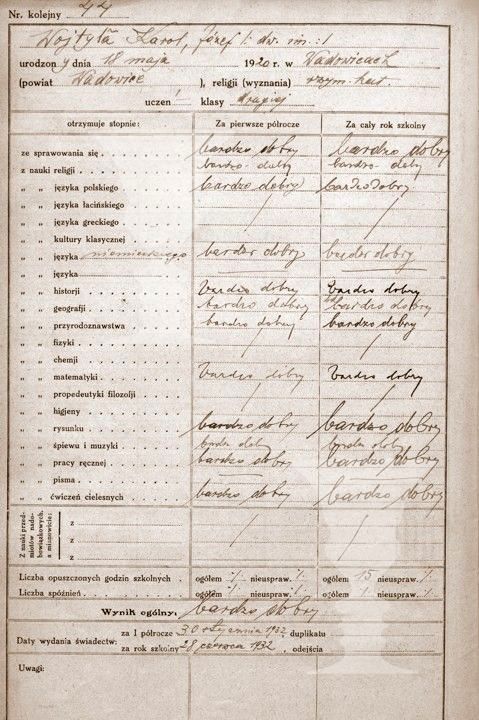 Nr. kolejny 44
Wojtyła Karol, Józef /: dw. im.:/
urodzony dnia 18 maja 1920 r. w Wadowicach
(powiat Wadowice ), religii (wyznania) rzym. kat.
uczeń klasy drugiej
otrzymuje stopnie: Za pierwsze półrocze Za cały rok szkolny
ze sprawowania się bardzo dobry bardzo dobry
z nauki religii bardzo dobry bardzo dobry
" " języka polskiego bardzo dobry bardzo dobry
" " języka łacińskiego / /
" " języka greckiego
" " kultury klasycznej
" " języka niemieckiego bardzo dobry bardzo dobry
" " języka
" " historji bardzo dobry bardzo dobry
" " geografji bardzo dobry bardzo dobry
" " przyrodoznawstwa bardzo dobry bardzo dobry
" " fizyki / /
" " chemji
" " matematyki bardzo dobry bardzo dobry
" " propedeutyki filozofji / /
" " higjeny
" " rysunku bardzo dobry bardzo dobry
" " śpiewu i muzyki bardzo dobry bardzo dobry
" " pracy ręcznej bardzo dobry bardzo dobry
" " pisma
" " ćwiczeń cielesnych bardzo dobry bardzo dobry
Z nauki przedmiotów nadobowiązkowych, a mianowicie:
z / /
z
z
Liczba opuszczonych godzin szkolnych ogółem ·/. nieuspraw. ·/. ogółem 15 nieuspraw. ·/.
Liczba spóźnień ogółem ·/. nieuspraw. ·/. ogółem ·/. nieuspraw. ·/.
Wynik ogólny: bardzo dobry
Daty wydania świadectw: za I półrocze 30 stycznia 1932 duplikatu
za rok szkolny 28 czerwca 1932, odejścia
Uwagi: